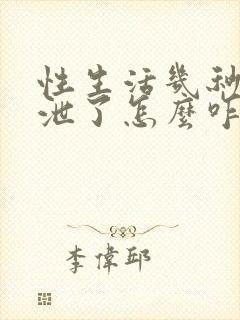 性生活幾秒
泄了怎麼咋
李偉邱